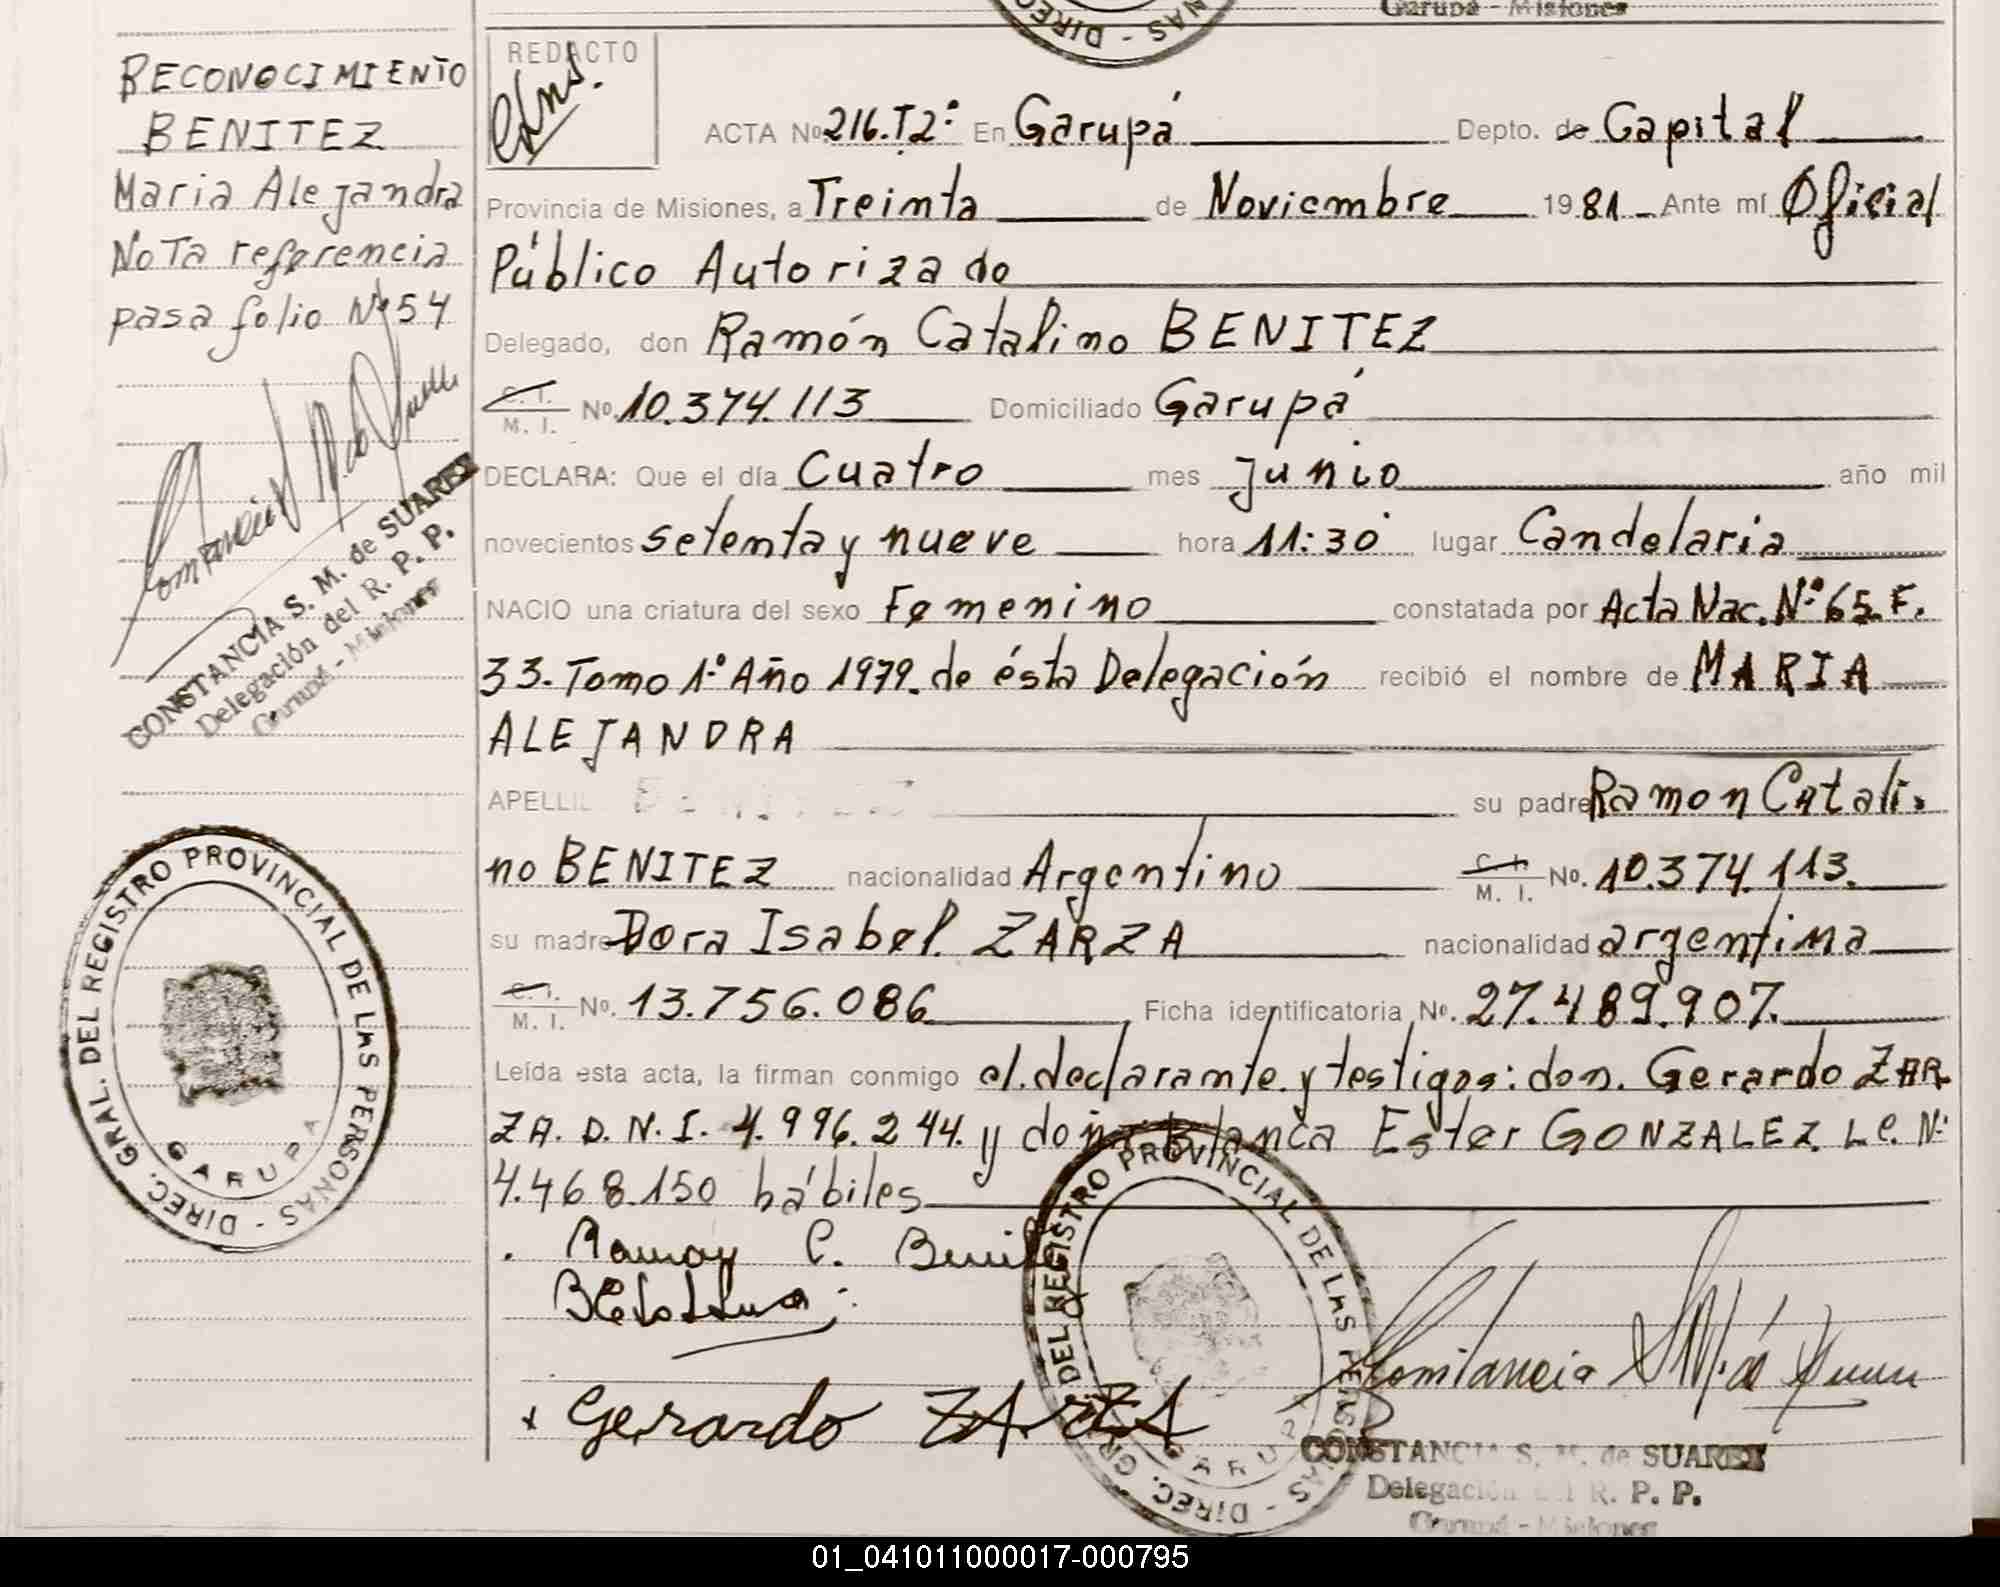 Garupá - Misiones
RECONOCIMIENTO
BENITEZ
Maria Alejandra
Nota referencia
pasa folio Nº 54
CONSTANCIA S. M. de SUAREZ
Delegación del R. P. P.
Garupá - Misiones
DIREC. GRAL. DEL REGISTRO PROVINCIAL DE LAS PERSONAS -
GARUPA
REDACTO
ACTA Nº 216.T2º En Garupá Depto. de Capital
Provincia de Misiones, a Treinta de Noviembre 1981 Ante mí Oficial
Público Autorizado
Delegado, don Ramón Catalino BENITEZ
C. I. / M. I. No. 10.374.113 Domiciliado Garupá
DECLARA: Que el día Cuatro mes Junio año mil
novecientos setenta y nueve hora 11:30 lugar Candelaria
NACIO una criatura del sexo Femenino constatada por Acta Nac. Nº 65 F.
33. Tomo 1º Año 1979. de ésta Delegación recibió el nombre de MARIA
ALEJANDRA
APELLI BENITEZ su padre Ramon Catali-
no BENITEZ nacionalidad Argentino C. I. / M. I. No. 10.374.113.
su madre Dora Isabel ZARZA nacionalidad argentina
C. I. / M. I. No. 13.756.086 Ficha identificatoria No. 27.489.907.
Leída esta acta, la firman conmigo el declarante y testigos: don. Gerardo ZAR
ZA. D.N.I. 4.996.244. y doña Blanca Ester GONZALEZ L.C. Nº
4.468.150 hábiles
Ramon C. Benit
Gerardo ZARZA
DIREC. GRAL. DEL REGISTRO PROVINCIAL DE LAS PERSONAS -
GARUPA
CONSTANCIA S. M. de SUAREZ
Delegación del R. P. P.
Garupá - Misiones
01_041011000017-000795